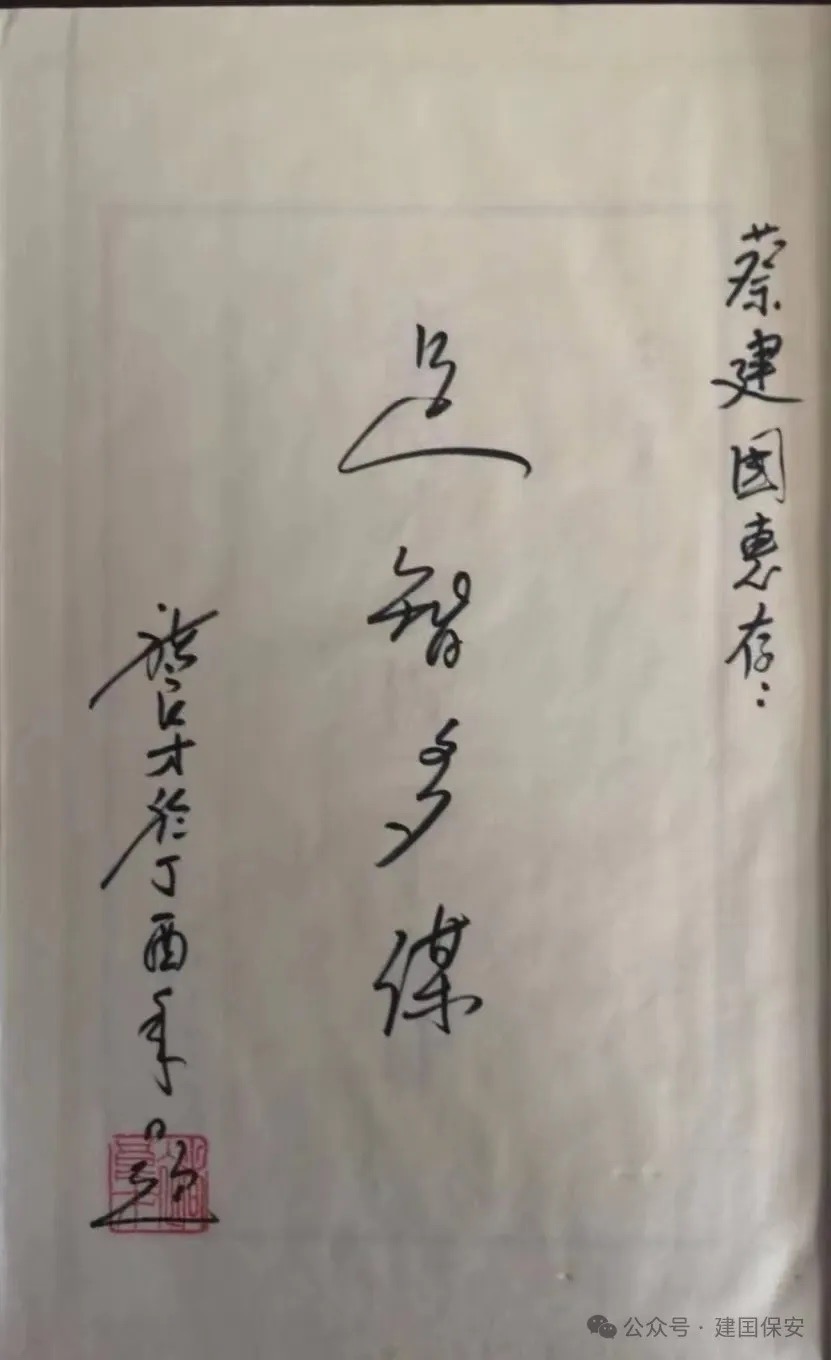 蔡建国惠存：
足智多谋
才於丁酉年题
公众号 · 建国保安